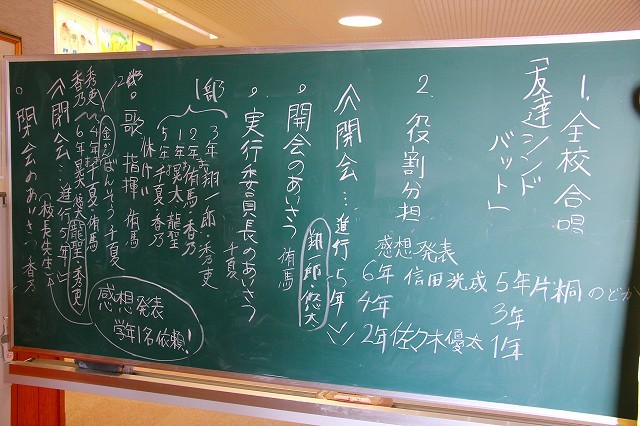 1. 全校合唱
「友達シンドバット」
2. 役割分担
感想発表
6年 信田洸成
5年 片桐のどか
4年
3年
2年 佐々木優太
1年
開会…進行5年
翔一郎・悠太
○開会のあいさつ 侑馬
○実行委員長のあいさつ 千夏
1部
3年 翔一郎・秀吏
2年 侑馬・香乃
1年 晃太 龍聖
5年 千夏・香乃
休けい
2部
○歌 指揮 侑馬
ばんそう 千夏
秀吏
香乃
4年 千夏・侑馬
6年 晃太 悠太 龍聖・秀吏
閉会…進行5年
(校長先生)
○閉会のあいさつ 香乃
感想発表
学年1名依頼!